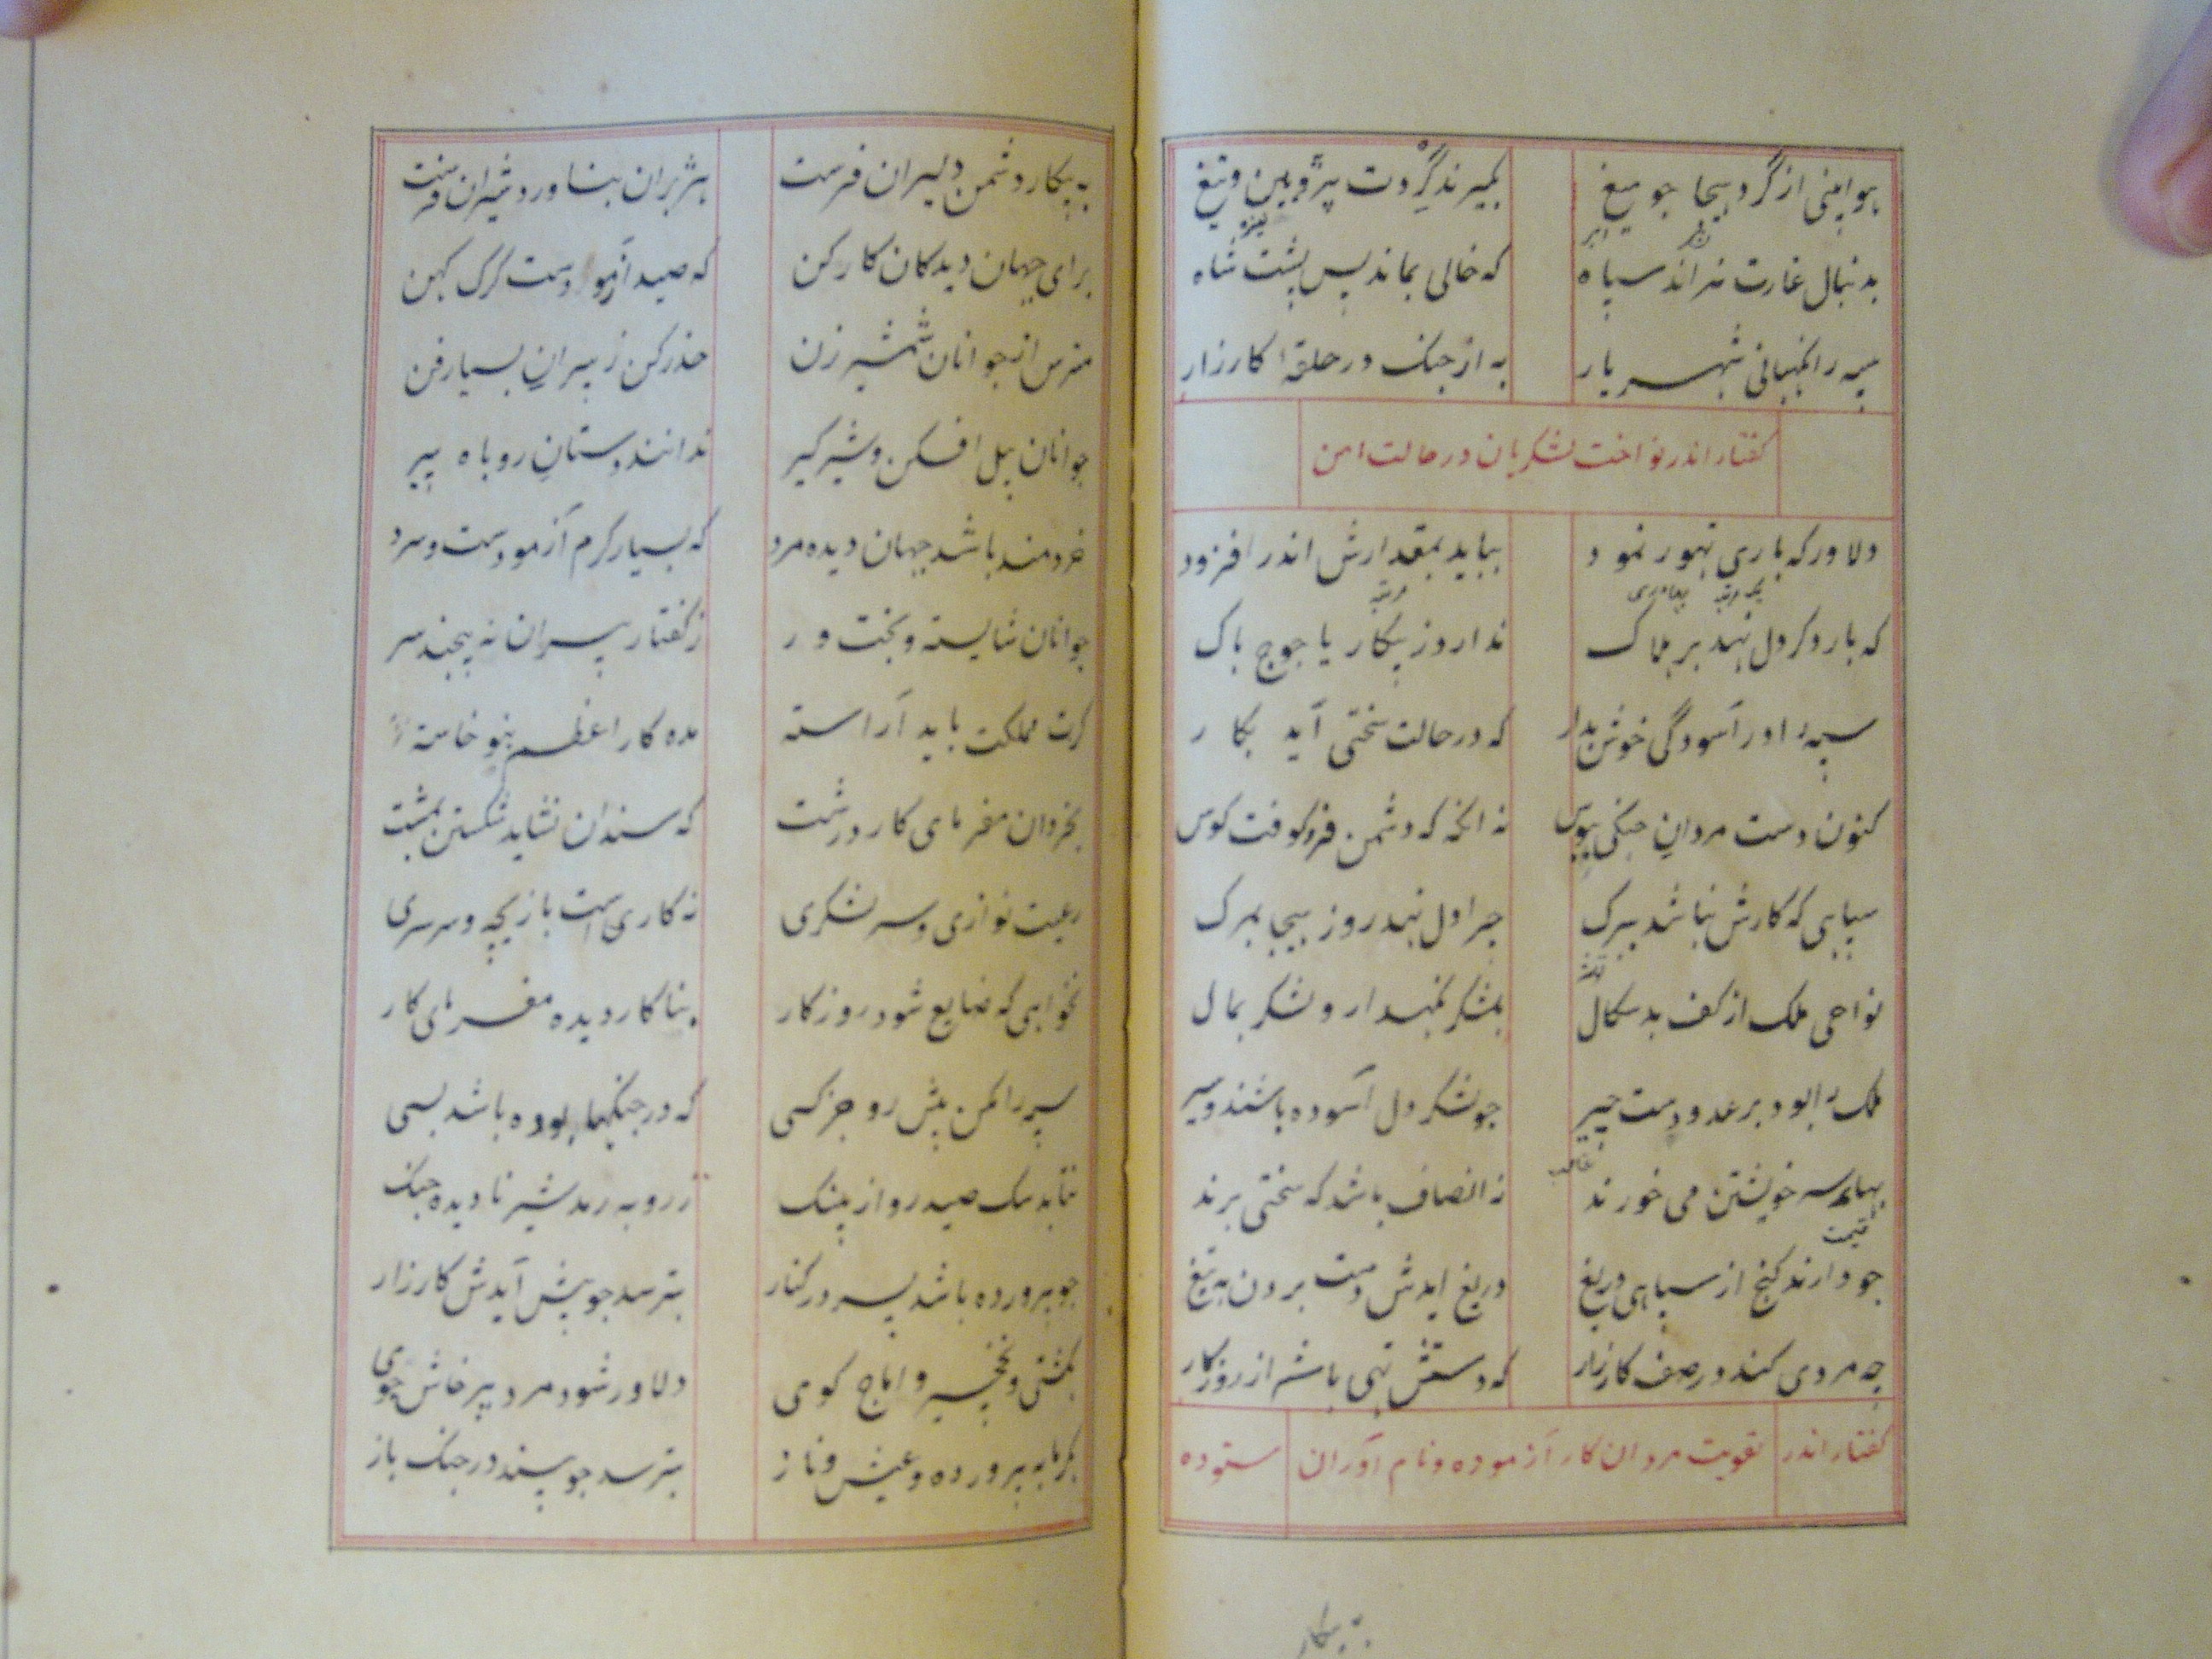 هوا بینی از گرد هیجا جو میغ بگیرند گردت پژوبین و تیغ
ابر نیزه
بدنبال غارت نراند سپاه که خالی بماند پس پشت شاه
سپه را نکهبانی شهریار به از جنک در حلقهٔ کارزار
کفتار اندر نواخت لشکریان در حالت امن
دلاور که باری تهور نمود بباید بمقدارش اندر افزود
یکمرتبه مرتبه
که بار دکر دل نهد بر هلاک ندارد ز پیکار یاجوج باک
سپه را در آسودگی خوش بدار که در حالت سختی آید بکار
کنون دست مردان جنکی ببوس نه انکه که دشمن فرو کوفت کوس
سپاهی که کارش نباشد ببرک چرا دل نهد روز هیجا بمرک
نواحی ملک از کف بدسکال بلشکر نکهدار و لشکر بمال
ملک را بود بر عدو دست چیر جو لشکر دل آسوده باشند و سیر
غالب
بهای سر خویشتن می خورند نه انصاف باشد که سختی برند
قیمت
جو دارند کنج از سپاهی دریغ دریغ ایدش دست بردن به تیغ
چه مردی کند در صف کارزار که دستش تهی باشد از روزکار
کفتار اندر تقویت مردان کار آزموده و نام آوران ستوده
به پیکار
به پیکار دشمن دلیران فرست هژبران بناورد شیران فرست
برای جهان دیدکان کار کن که صید آزمودست کرک کهن
مترس از جوانان شمشیر زن حذر کن ز پیران بسیار فن
جوانان پیل افکن و شیر کیر ندانند دستان روباه پیر
خردمند باشد جهان دیده مرد که بسیار کرم آزمودست و سرد
جوانان شایسته و بخت ور ز کفتار پیران نه پیچند سر
کرت مملکت باید آراسته مده کار اعظم بنو خاسته
بخردان مفرمای کار درشت که سندان نشاید شکستن بمشت
رعیت نوازی و سر لشکری نه کاری است بازیچه و سرسری
نخواهی که ضایع شود روزکار بنا کار دیده مفرمای کار
سپه را مکن پیش رو جز کسی که در جنکها بوده باشد بسی
نتابد سک صید رو از پلنک ز روبه رمد شیر نادیده جنک
جو پرورده باشد پسر در کنار بترسد جو پیش آیدش کارزار
بکشتی و نخجیر و اماج کوی دلاور شود مرد پرخاش جوی
بکرمابه پرورده و عیش و ناز بترسد جو بیند در جنک باز